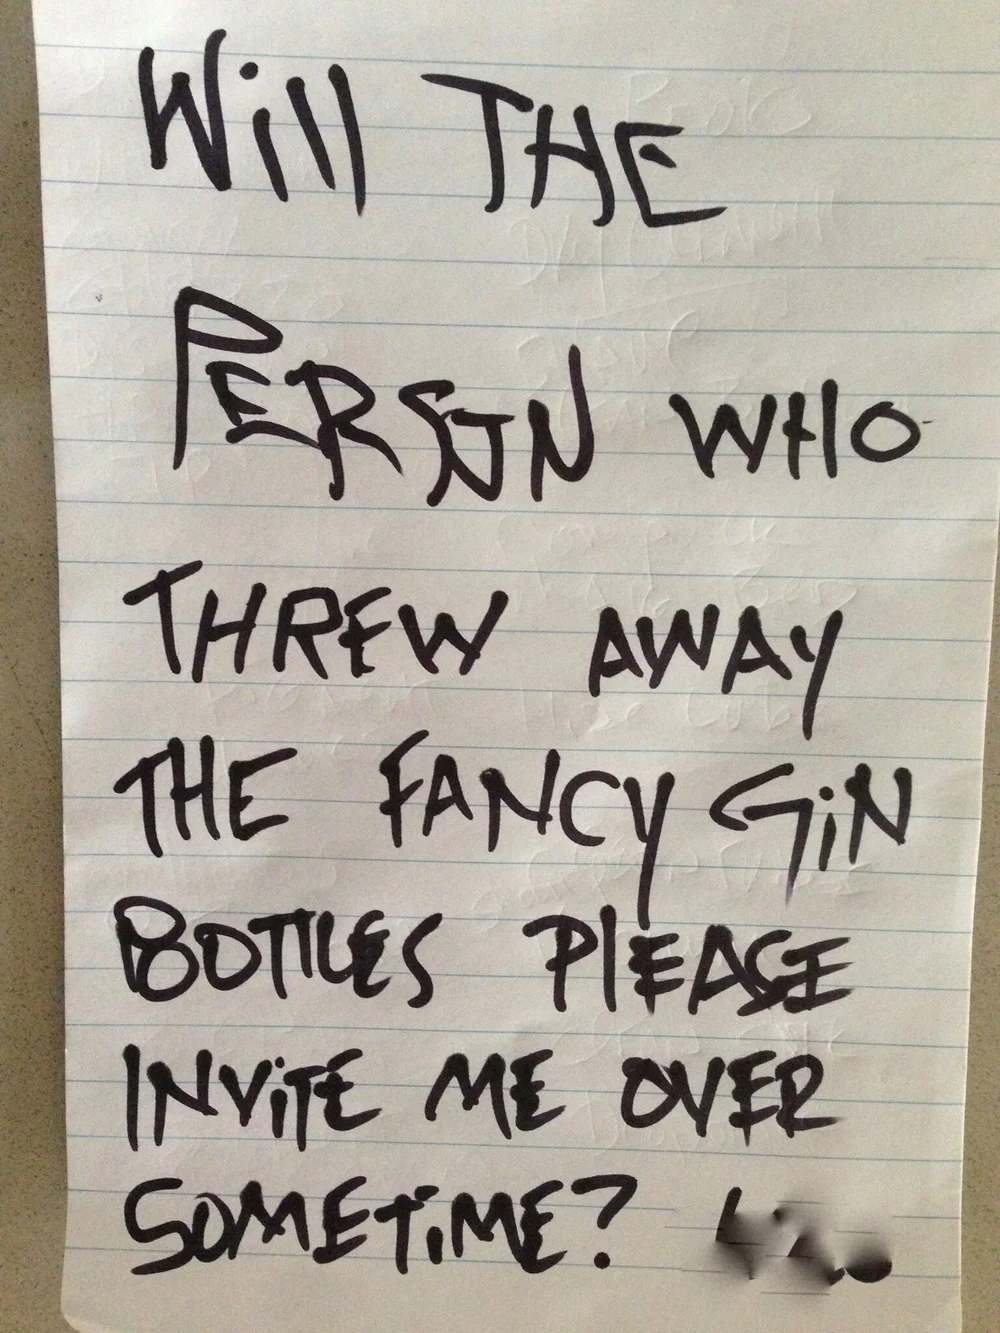 Will THE
PERSON WHO
THREW AWAY
THE FANCY GiN
BOTTLES PlEASE
INViTE ME OVER
SOMETiME?